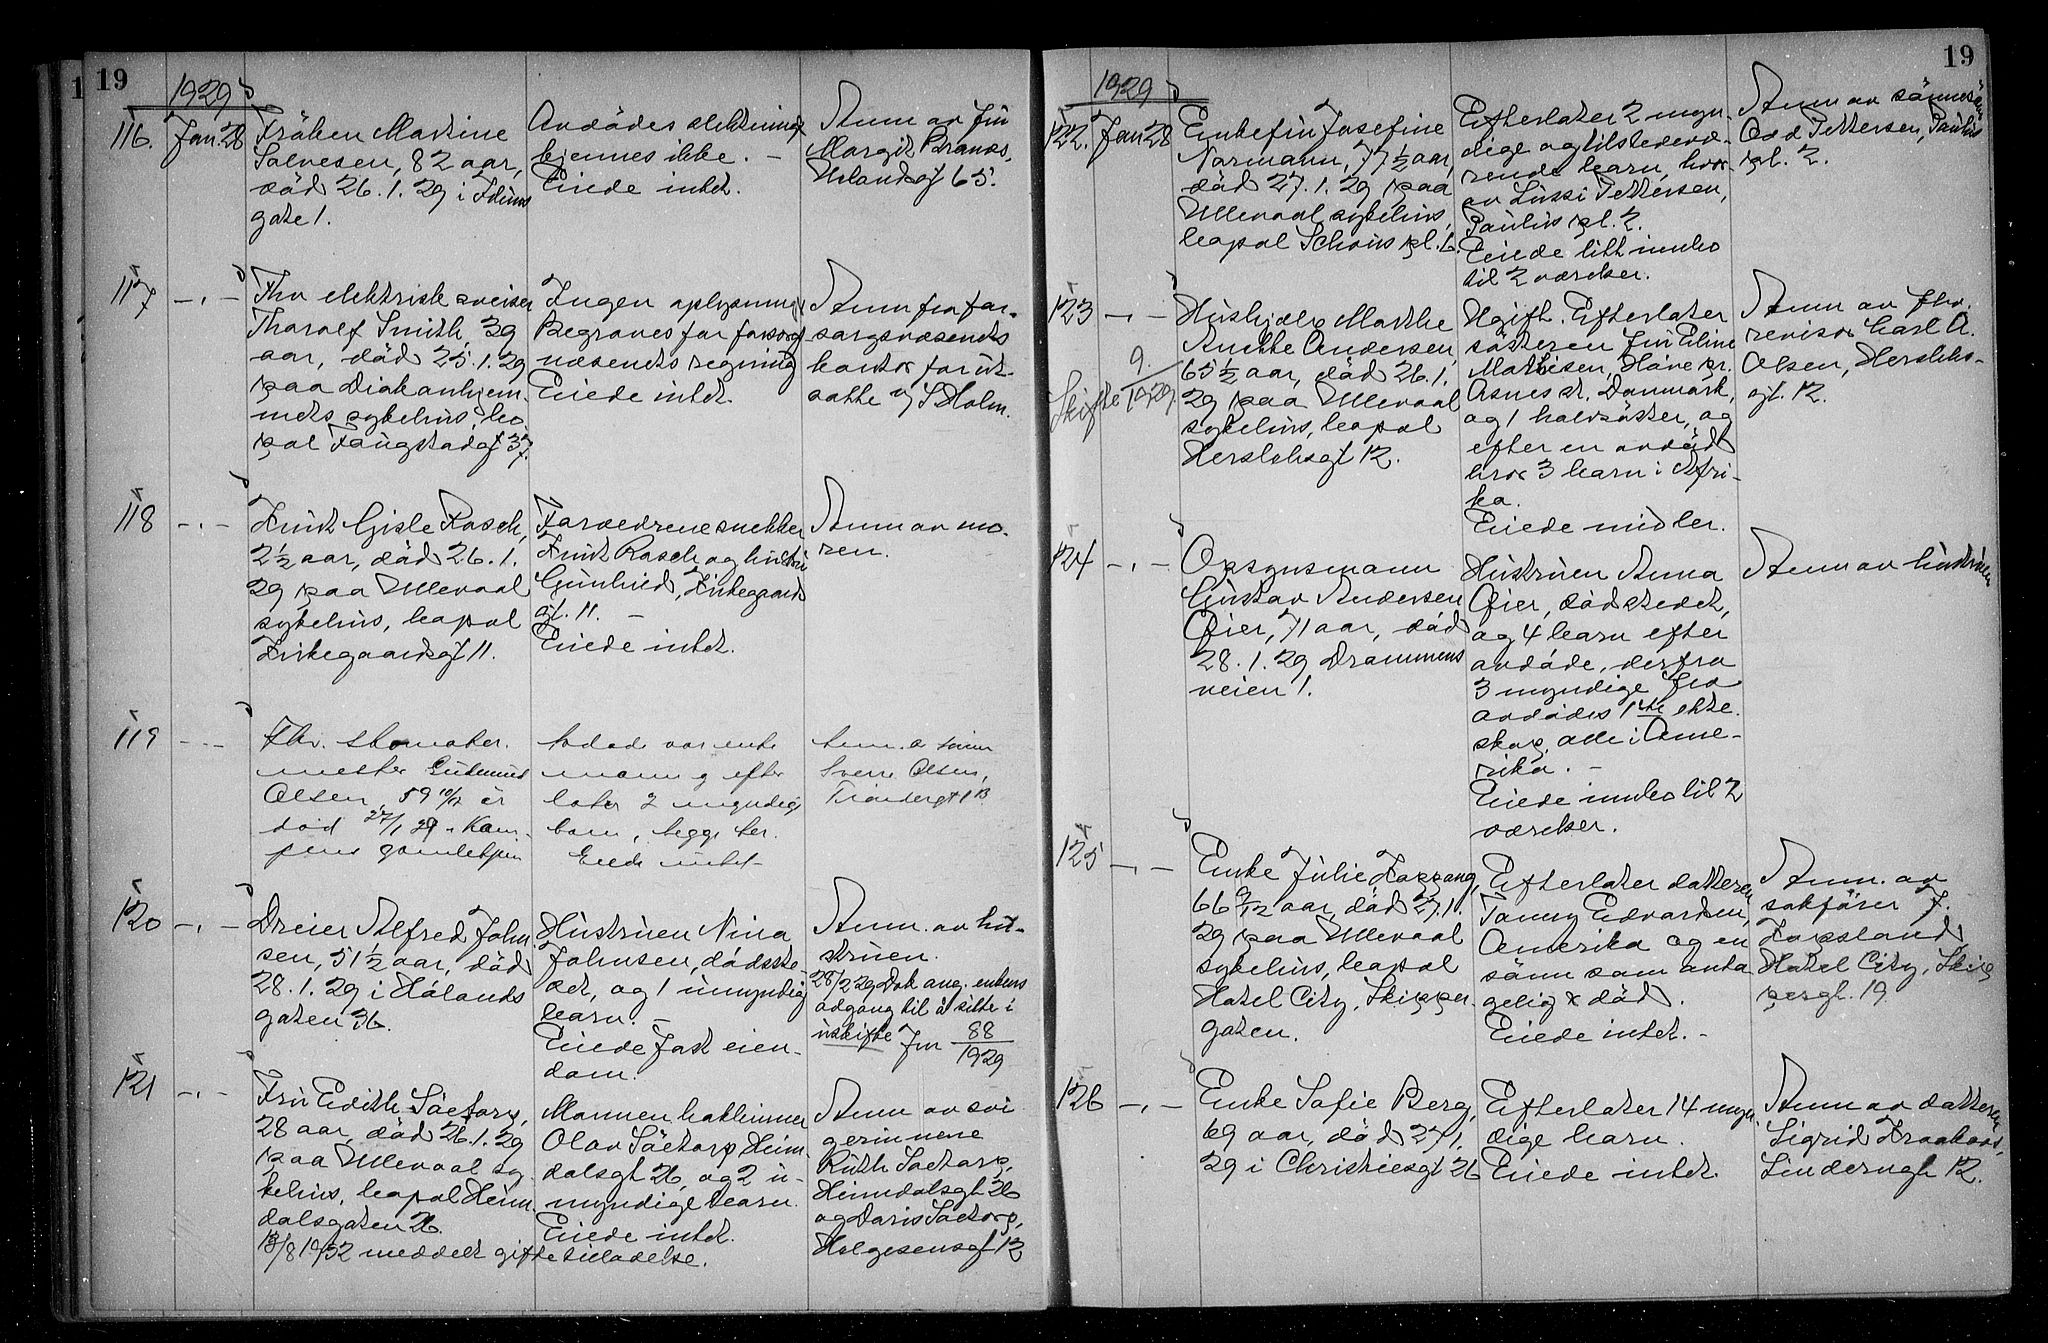 19
1929
116. Jan. 28
Fröken Martine
Salvesen, 82 aar,
död 26.1.29 i Iduns
gate 1.
Avdödes slektninger
kjennes ikke. –
Eiede intet.
Anm av frk
Margit Branæs,
Uelandsgt 65.
117 – . –
Fhv elektrisk sveiser
Tharalf Smith, 39
aar, död 25.1.29
paa Diakonhjem-
mets sykehus, bo-
pæl Faugstadgt 37.
Ingen oplysning
Begraves for forsorgs
væsenets regning
Eiede intet.
Anm fra for-
sorgsvæsenets
kontor for ut-
satte v/ S Holm.
118 – . –
Knut Gisle Rasch,
2½ aar, död 26.1.
29 paa Ullevaal
sykehus, bopæl
Kirkegaardsgt 11.
Forældrene snekker
Knut Rasch og hustru
Gunhild, Kirkegaards
gt. 11. –
Eiede intet.
Anm av mo-
ren.
119 – . –
Fhv. skomaker-
mester Gudmund
Olsen, 59 10/12 år
död 27/1 29 i Kam-
pens gamlehjem
Avdøde var enke
mann og efter
later 2 myndige
barn, begge her.
Eiede intet –
Anm. a sönnen
Sverre Olsen,
Tröndergt 1 B
120 – . –
Dreier Alfred John-
sen, 51½ aar, död
28.1.29 i Hålands
gaten 36.
Hustruen Nina
Johnsen, dödsste-
det, og 1 umyndig
barn. –
Eiede fast eien-
dom.
Anm. av hu-
struen.
28/2 29 Dok ang. enkens
adgang til å sitte i
uskifte Jnr 88/1929
121 – . –
Fru Edith Säetorp,
28 aar, död 26.1.29
paa Ullevaal sy-
kehus, bopæl Heim-
dalsgaten 26.
Mannen baklinimer
Olav Säetorp Heim-
dalsgt 26, og 2 u-
myndige barn
Eiede intet.
Anm av svi
gerinnene
Ruth Saetorp,
Heimdalsgt 26
og Doris Saetorp,
Helgesensgt 12
13/8 1932 meddelt giftetilladelse.
19
1929
122. Jan 28
Enkefru Josefine
Normann, 77½ aar,
död 27.1.29 paa
Ullevaal sykehus,
bopæl Schous pl. 6.
Efterlater 2 myn-
dige og tilstedevæ-
rende barn, hvor-
av Lussi Pettersen,
Paulus pl. 2.
Eiede litt innbo
til 2 værelser.
Anm av sönnesön
Odd Pettersen, Paulus
pl. 2.
123 – . –
Skifte 9/1929
Hushjelp Marthe
Anette Andersen,
65½ aar, död 26.1.
29 paa Ullevaal
sykehus, bopæl
Herslebsgt 12.
Ugift. Efterlater
sösteren fru Eline
Mathisen, Håve pr.
Asnes st. Danmark,
og 1 halvsöster, og
efter en avdöd
bror 3 barn i Afri-
ka.
Eiede midler.
Anm av fhv.
revisor Carl A.
Olsen, Herslebs-
gt. 12.
124 – . –
Opsynsmann
Gustav Andersen
Øier, 71 aar, död
28.1.29 Drammens
veien 1.
Hustruen Anna
Øier, dödstedet,
og 4 barn efter
avdöde, derfra
3 myndige fra
avdödes 1ste ekte-
skap, alle i Ame-
rika. –
Eiede innbo til 2
værelser.
Anm av hustruen
125 – . –
Enke Julie Kappang,
66 9/12 aar, död 27.1.
29 paa Ullevaal
sykehus, bopæl
Hotel City, Skipper-
gaten.
Efterlater datteren
Fanny Edvardsen,
Amerika og en
sönn som anta-
gelig er död.
Eiede intet. –
Anm. av
sakförer J.
Kopsland
Hotel City, Skip
pergt. 19
126 – . –
Enke Sofie Berg,
69 aar, död 27.1.
29 i Christiesgt 26
Efterlater 14 myn-
dige barn.
Eiede intet.
Anm av datteren
Sigrid Kraabøl,
Lindernsgt 12.